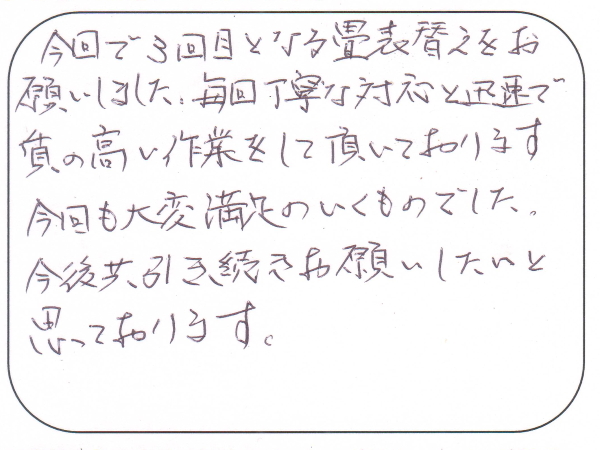 今回で3回目となる畳表替えをお
願いしました。毎回丁寧な対応と迅速で
質の高い作業をして頂いております
今回も大変満足のいくものでした。
今後共、引き続きお願いしたいと
思っております。